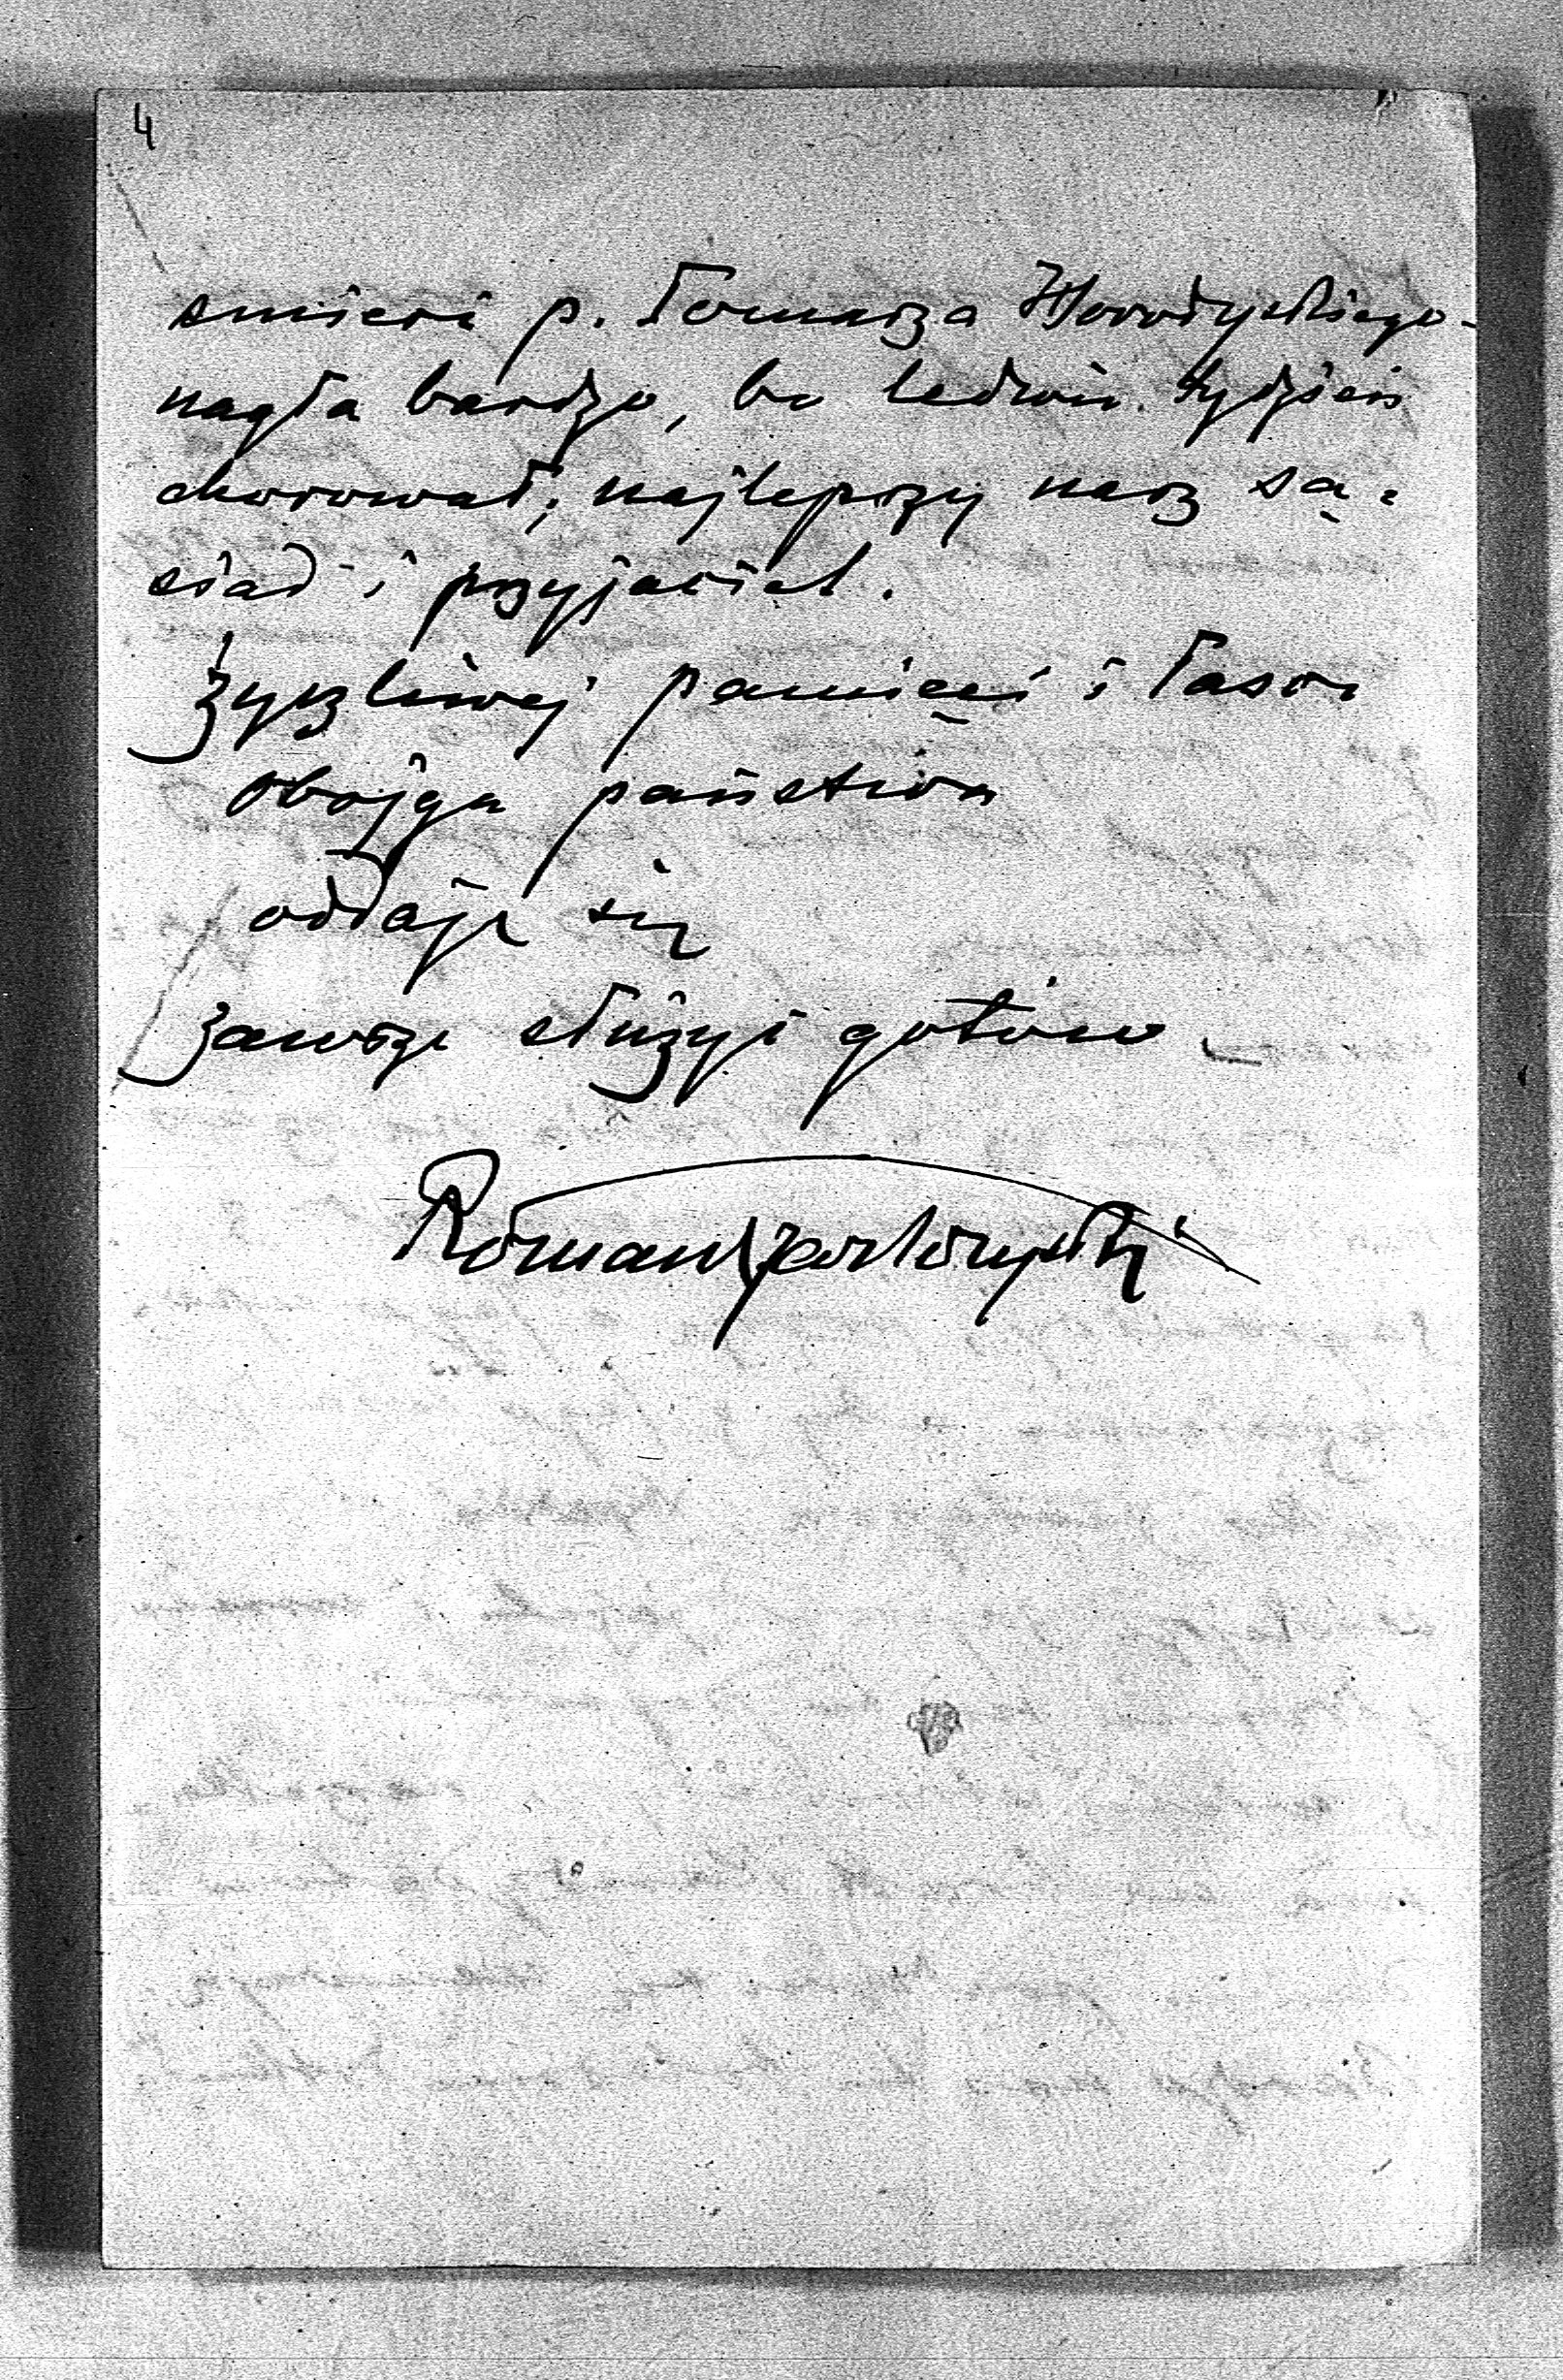 4
śmierć p. Tomasza Horodyskiego -
nagła bardzo, bo ledwie tydzień
chorował; najlepszy nasz są-
siad i przyjaciel.
Życzliwej pamięci i łasce
obojga państwa
oddaję się
zawsze służyć gotów
Roman Czartoryski